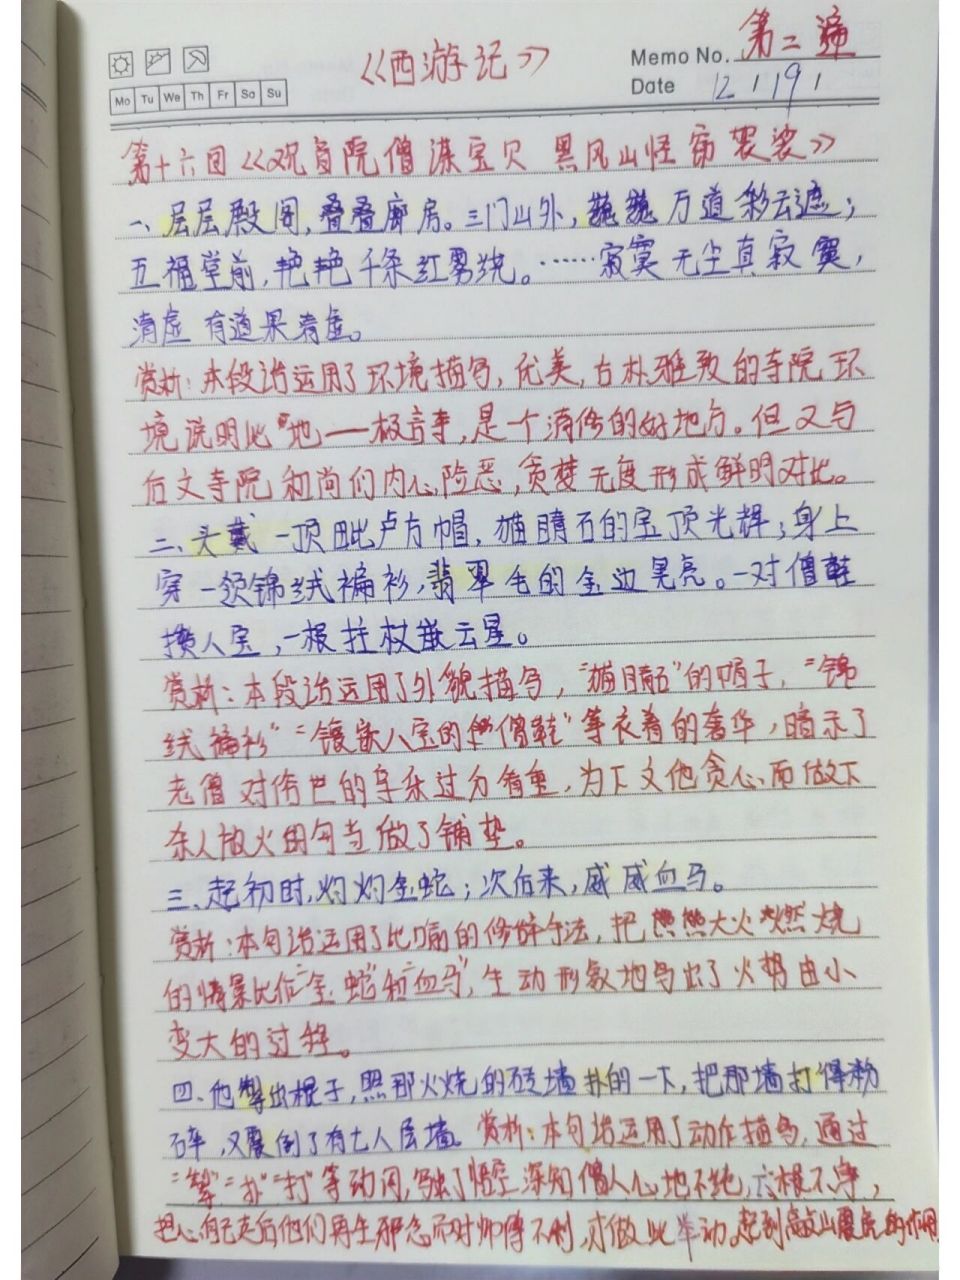 《西游记》
Memo No. 第二遍
Date 12 / 19 /
Mo Tu We Th Fr Sa Su
第十六回《观音院僧谋宝贝 黑风山怪窃袈裟》
一、层层殿阁,叠叠廊房。三门山外,巍巍万道彩云遮;
五福堂前,艳艳千条红雾绕。……寂寞无尘真寂寞,
清虚有道果清虚。
赏析:本段话运用了环境描写,优美,古朴雅致的寺院环
境说明此地一极言事,是一个清修的好地方。但又与
后文寺院和尚们内心险恶,贪婪无度形成鲜明对比。
二、头戴一顶毗卢方帽,猫睛石的宝顶光辉;身上
穿一领锦绒褊衫,翡翠毛的金边晃亮。一对僧鞋
攒八宝,一根拄杖嵌云星。
赏析:本段话运用了外貌描写,“猫睛石”的帽子,“锦
绒褊衫”“镶嵌八宝的僧鞋”等衣着的奢华,暗示了
老僧对俗世的享乐过分看重,为下文他贪心而做下
杀人放火的勾当做了铺垫。
三、起初时,灼灼金蛇;次后来,威威血马。
赏析:本句话运用了比喻的修辞手法,把熊熊大火燃烧
的情景比作“金蛇”和“血马”,生动形象地写出了火势由小
变大的过程。
四、他掣出棍子,照那火烧的砖墙扑的一下,把那墙打得粉
碎,又震倒了有七八层墙。赏析:本句话运用了动作描写,通过
“掣”“扑”“打”等动词,写出了悟空深知僧人心地不纯,六根不净,
担心自己走后他们再生邪念而对师傅不利,才做此举动,起到敲山震虎的作用